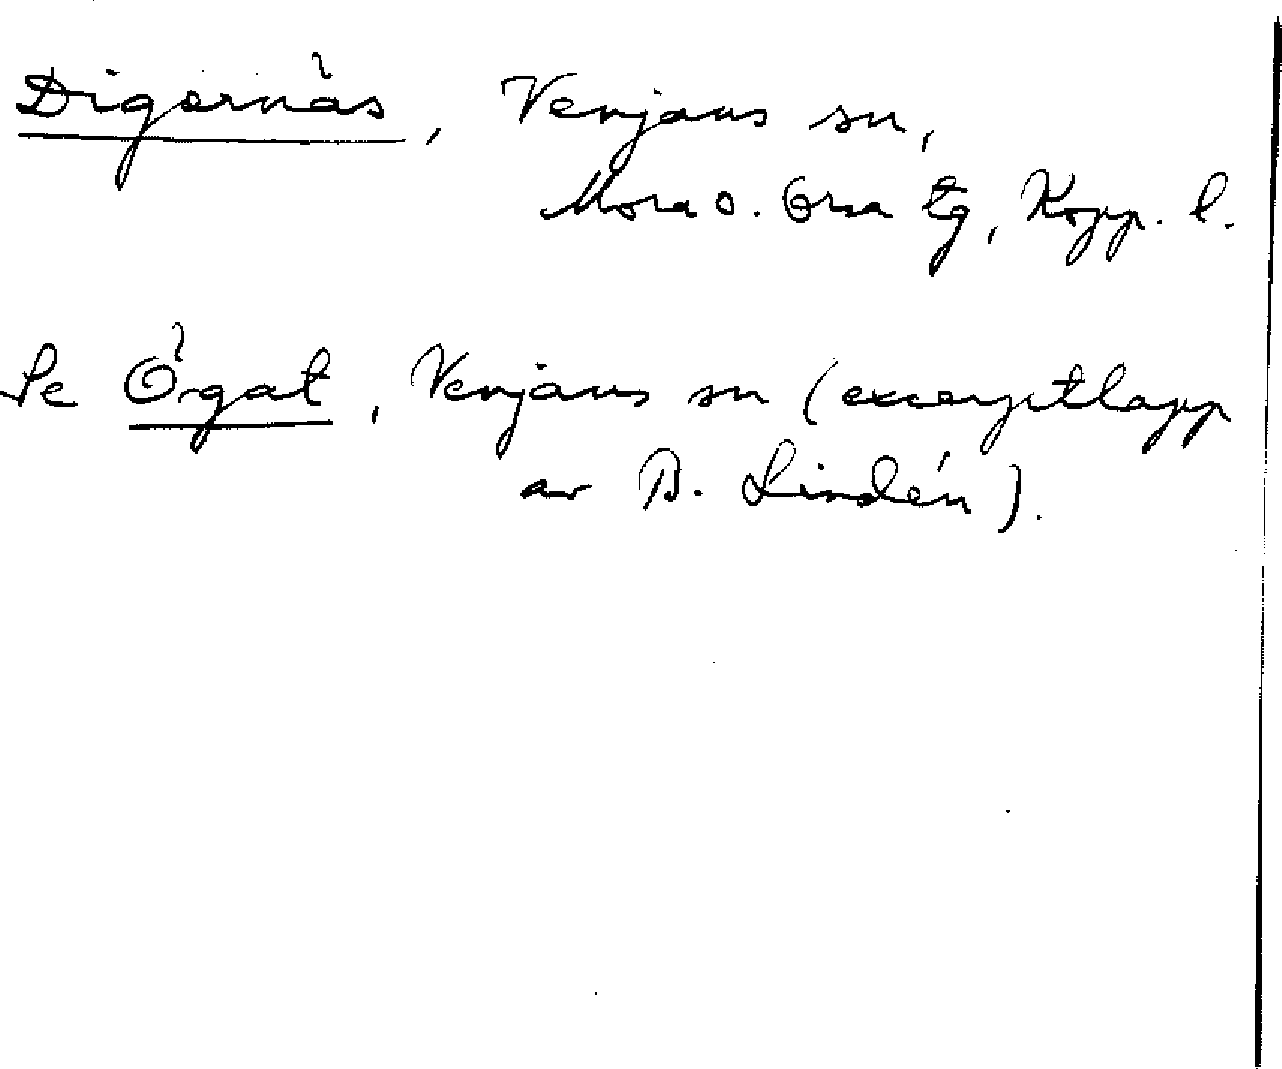 Digernäs, Venjans sn,
Mora o. Orsa tg, Kopp. l.
Se Ögat, Venjans sn (excerptlapp
av B. Lindén).